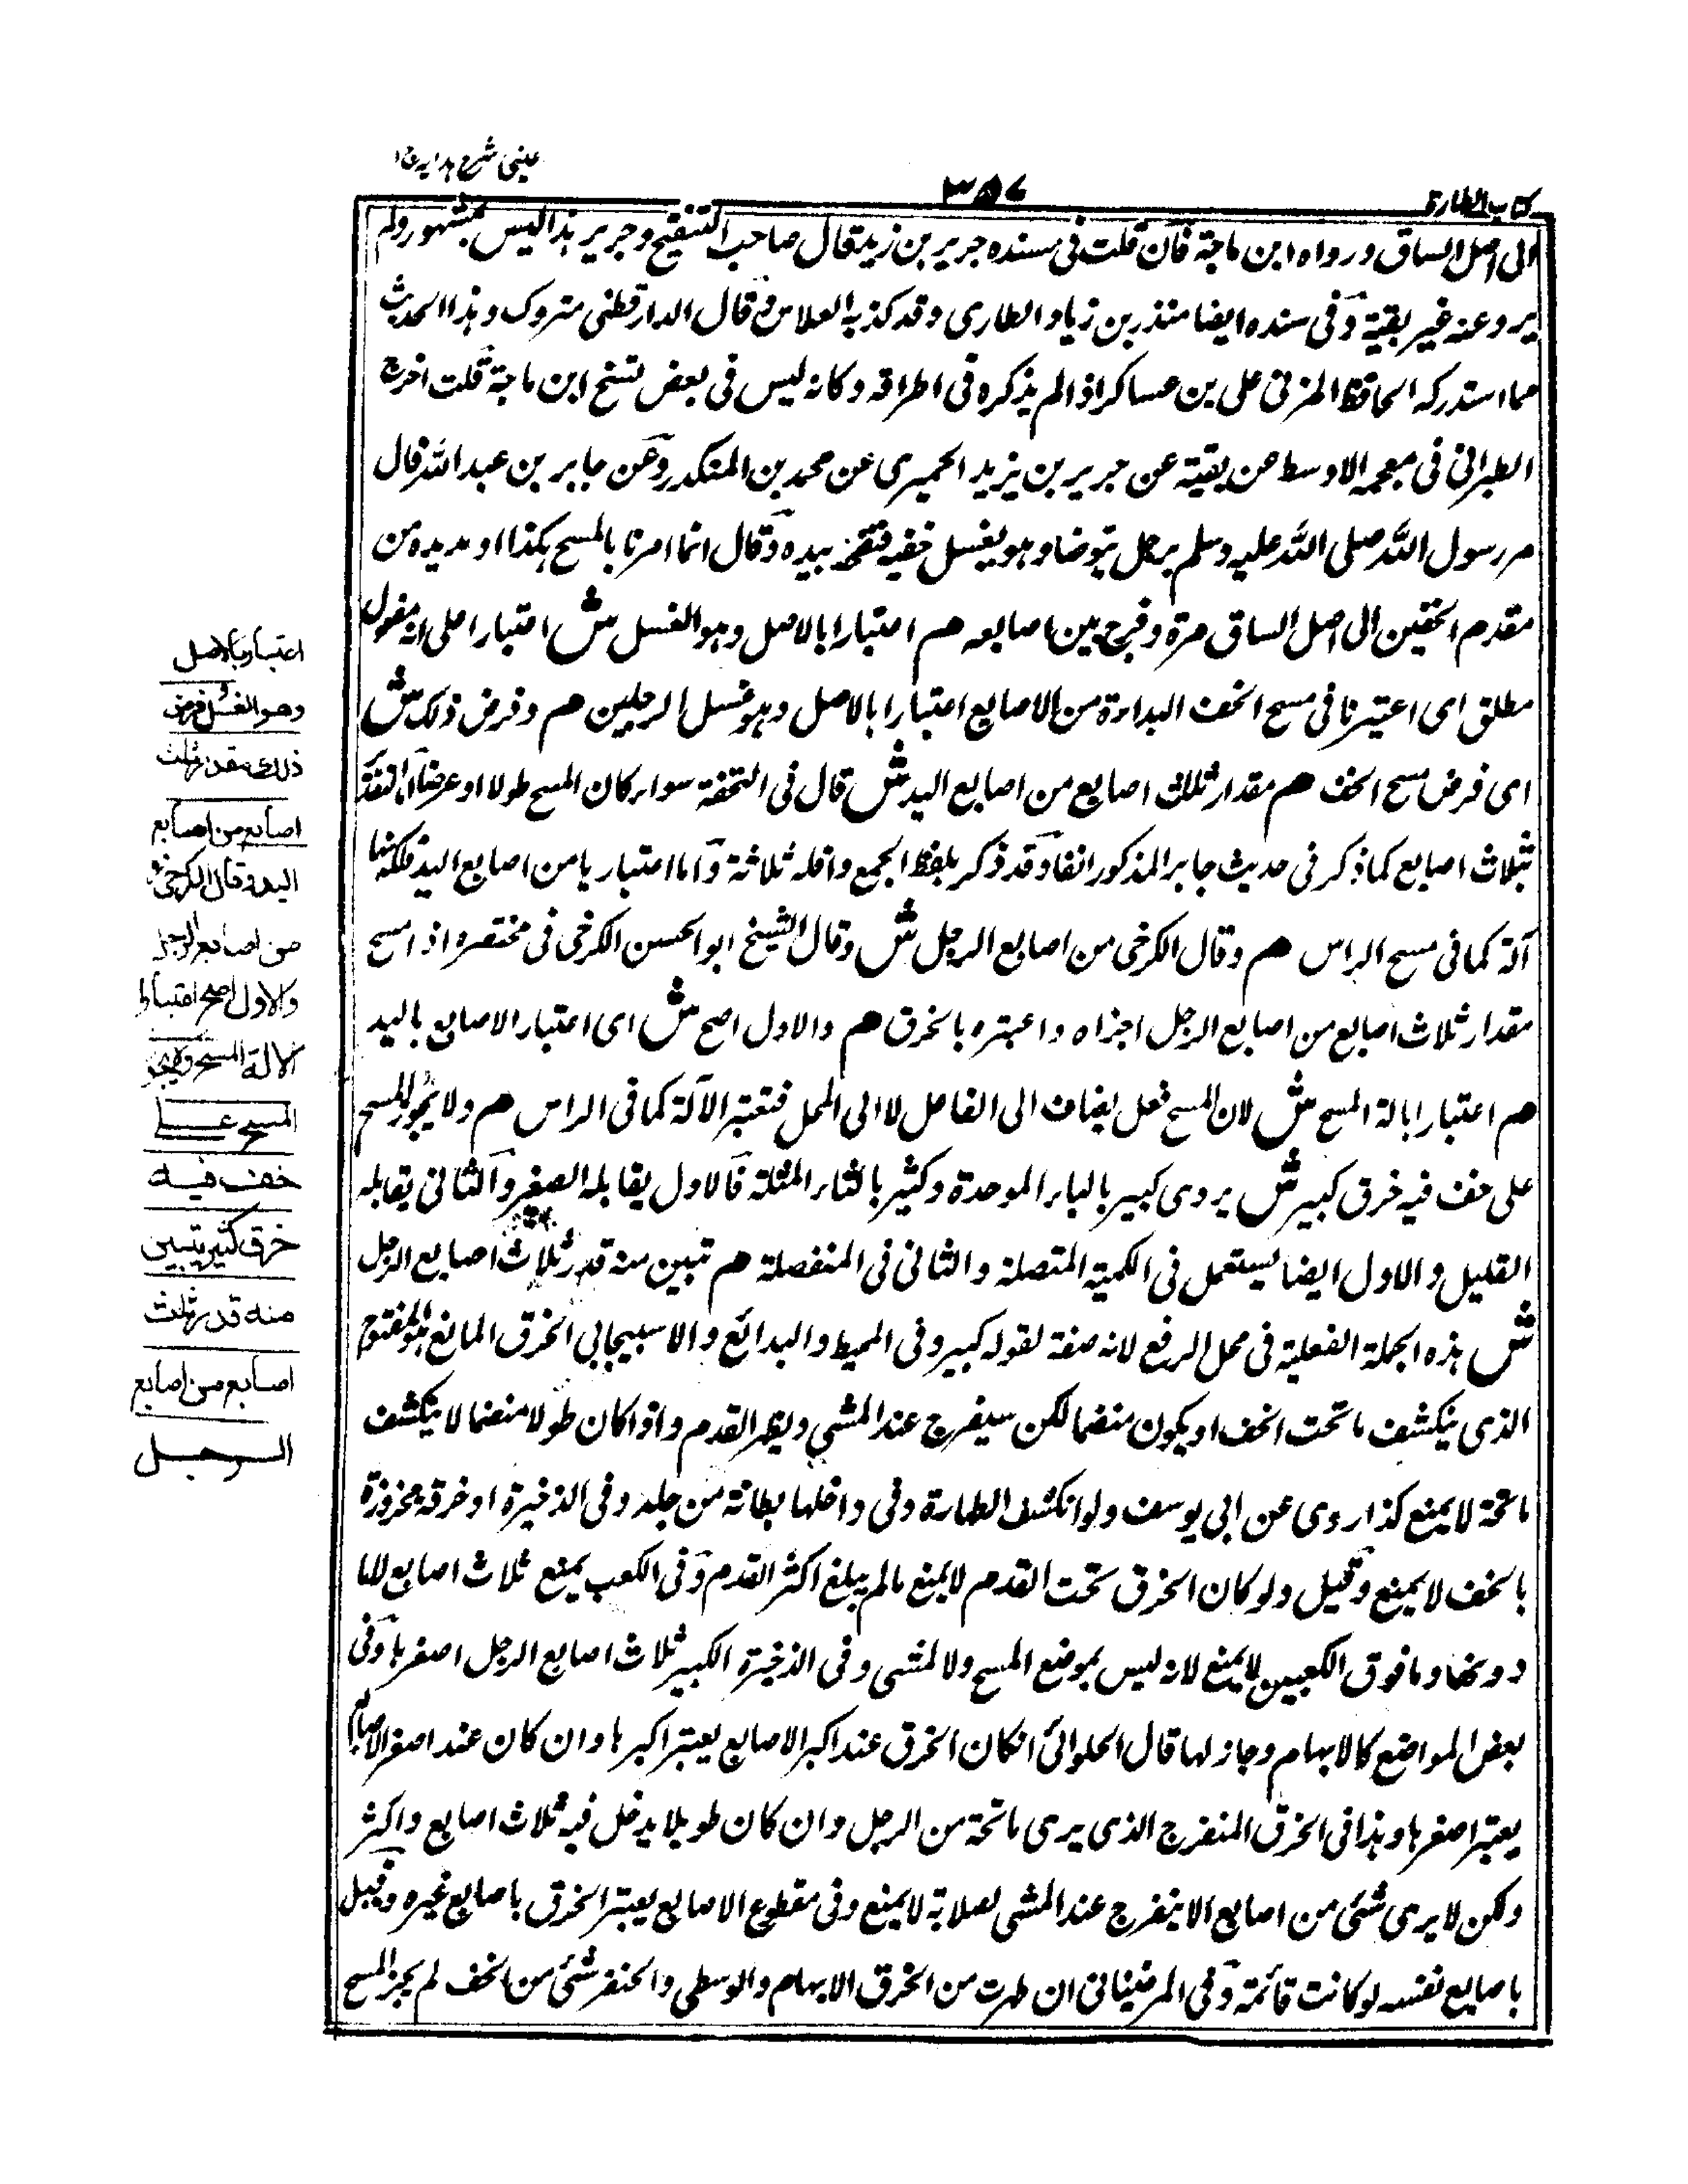 عینی شرح ہدایہ ج۱
۳۵۷
کتاب الطهارة
الى اصل الساق ورواه ابن ماجة فان قلت فى سنده جرير بن زيد قال صاحب التنقيح وجرير هذا ليس بمشهور ولم
يرو عنه غير بقية وفى سنده ايضا منذر بن زياد الطارى وقد كذبه الفلاس وقال الدارقطنى متروك وهذا الحديث
مما استدركه الحافظ المزنى على بن عساكر اذ الم يذكره فى اطرافه وكانه ليس فى بعض نسخ ابن ماجة قلت اخرج
الطبرانى فى معجمه الاوسط عن بقية عن جرير بن يزيد الحميرى عن محمد بن المنكدر وعن جابر بن عبد الله قال
مر رسول الله صلى الله عليه وسلم برجل يتوضا وهو يغسل خفيه بيده وقال انما امرنا بالمسح هكذا او مد يده من
مقدم الخفين الى اصل الساق مرة وفرج بين اصابعه هم اعتبارا بالاصل وهو الغسل ش اعتبارا على انه مفعول
مطلق اى اعتبرنا فى مسح الخف البداءة من الاصابع اعتبارا بالاصل وهو غسل الرجلين هم وفرض ذلك ش
اى فرض مسح الخف هم مقدار ثلاث اصابع من اصابع اليد ش قال فى التحفة سواء كان المسح طولا او عرضا
بثلاث اصابع كما ذكر فى حديث جابر المذكور انفا وقد ذكر بلفظ الجمع واقله ثلاثة واما اعتبارها من اصابع اليد فلكونها
آلة كما فى مسح الراس هم وقال الكرخى من اصابع الرجل ش وقال الشيخ ابو الحسن الكرخى فى مختصره اذا مسح
مقدار ثلاث اصابع من اصابع الرجل اجزاه واعتبره بالخرق هم والاول اصح ش اى اعتبار الاصابع باليد
هم اعتبارا بالة المسح ش لان المسح فعل يضاف الى الفاعل لا الى المحل فتعتبر الآلة كما فى الراس هم ولا يجوز المسح
على خف فيه خرق كبير ش يروى كبير بالباء الموحدة وكثير بالثاء المثلثة فالاول يقابله الصغير والثانى يقابله
القليل والاول ايضا يستعمل فى الكمية المتصلة والثانى فى المنفصلة هم تبين منه قدر ثلاث اصابع الرجل
ش هذه الجملة الفعلية فى محل الرفع لانه صفة لقوله كبير وفى المحيط والبدائع والاسبيجابى الخرق المانع هو المفتوح
الذى ينكشف ما تحت الخف او يكون منضما لكن سيفرج عند المشى ويظهر القدم واذا كان طولا منضما لا ينكشف
ما تحته لا يمنع كذا روى عن ابى يوسف ولو انكشف الظهارة وفى داخلها بطانة من جلد وفى الذخيرة او خرقة مخروزة
بالخف لا يمنع وقيل ولو كان الخرق تحت القدم لا يمنع مالم يبلغ اكثر القدم وفى الكعب يمنع ثلاث اصابع لا ما
دونها وما فوق الكعبين لا يمنع لانه ليس بموضع المسح ولا لمشى وفى الذخيرة الكبير ثلاث اصابع الرجل اصغرها وفى
بعض المواضع كالابهام وجاز لها قال الحلوائى انكان الخرق عند اكبر الاصابع يعتبر اكبرها وان كان عند اصغر الاصابع
يعتبر اصغرها وهذا فى الخرق المنفرج الذى يرى ما تحته من الرجل وان كان طويلا يدخل فيه ثلاث اصابع واكثر
ولكن لا يرى شئ من اصابع الا ينفرج عند المشى لصلابة لا يمنع وفى مقطوع الاصابع يعتبر الخرق باصابع غيره وقيل
باصابع نفسه لو كانت قائمة وفى المرغينانى ان ظهرت من الخرق الابهام والوسطى والخنصر شئ من الخف لم يجز المسح
اعتبارا بالاصل
وهو الغسل فرض
ذلك مقدار ثلث
اصابع من اصابع
اليد وقال الكرخى
من اصابع الرجل
والاول اصح اعتبارا
لالة المسح ولا يجوز
المسح على
خف فيه
خرق كثير يتبين
منه قدر ثلث
اصابع من اصابع
الرجل